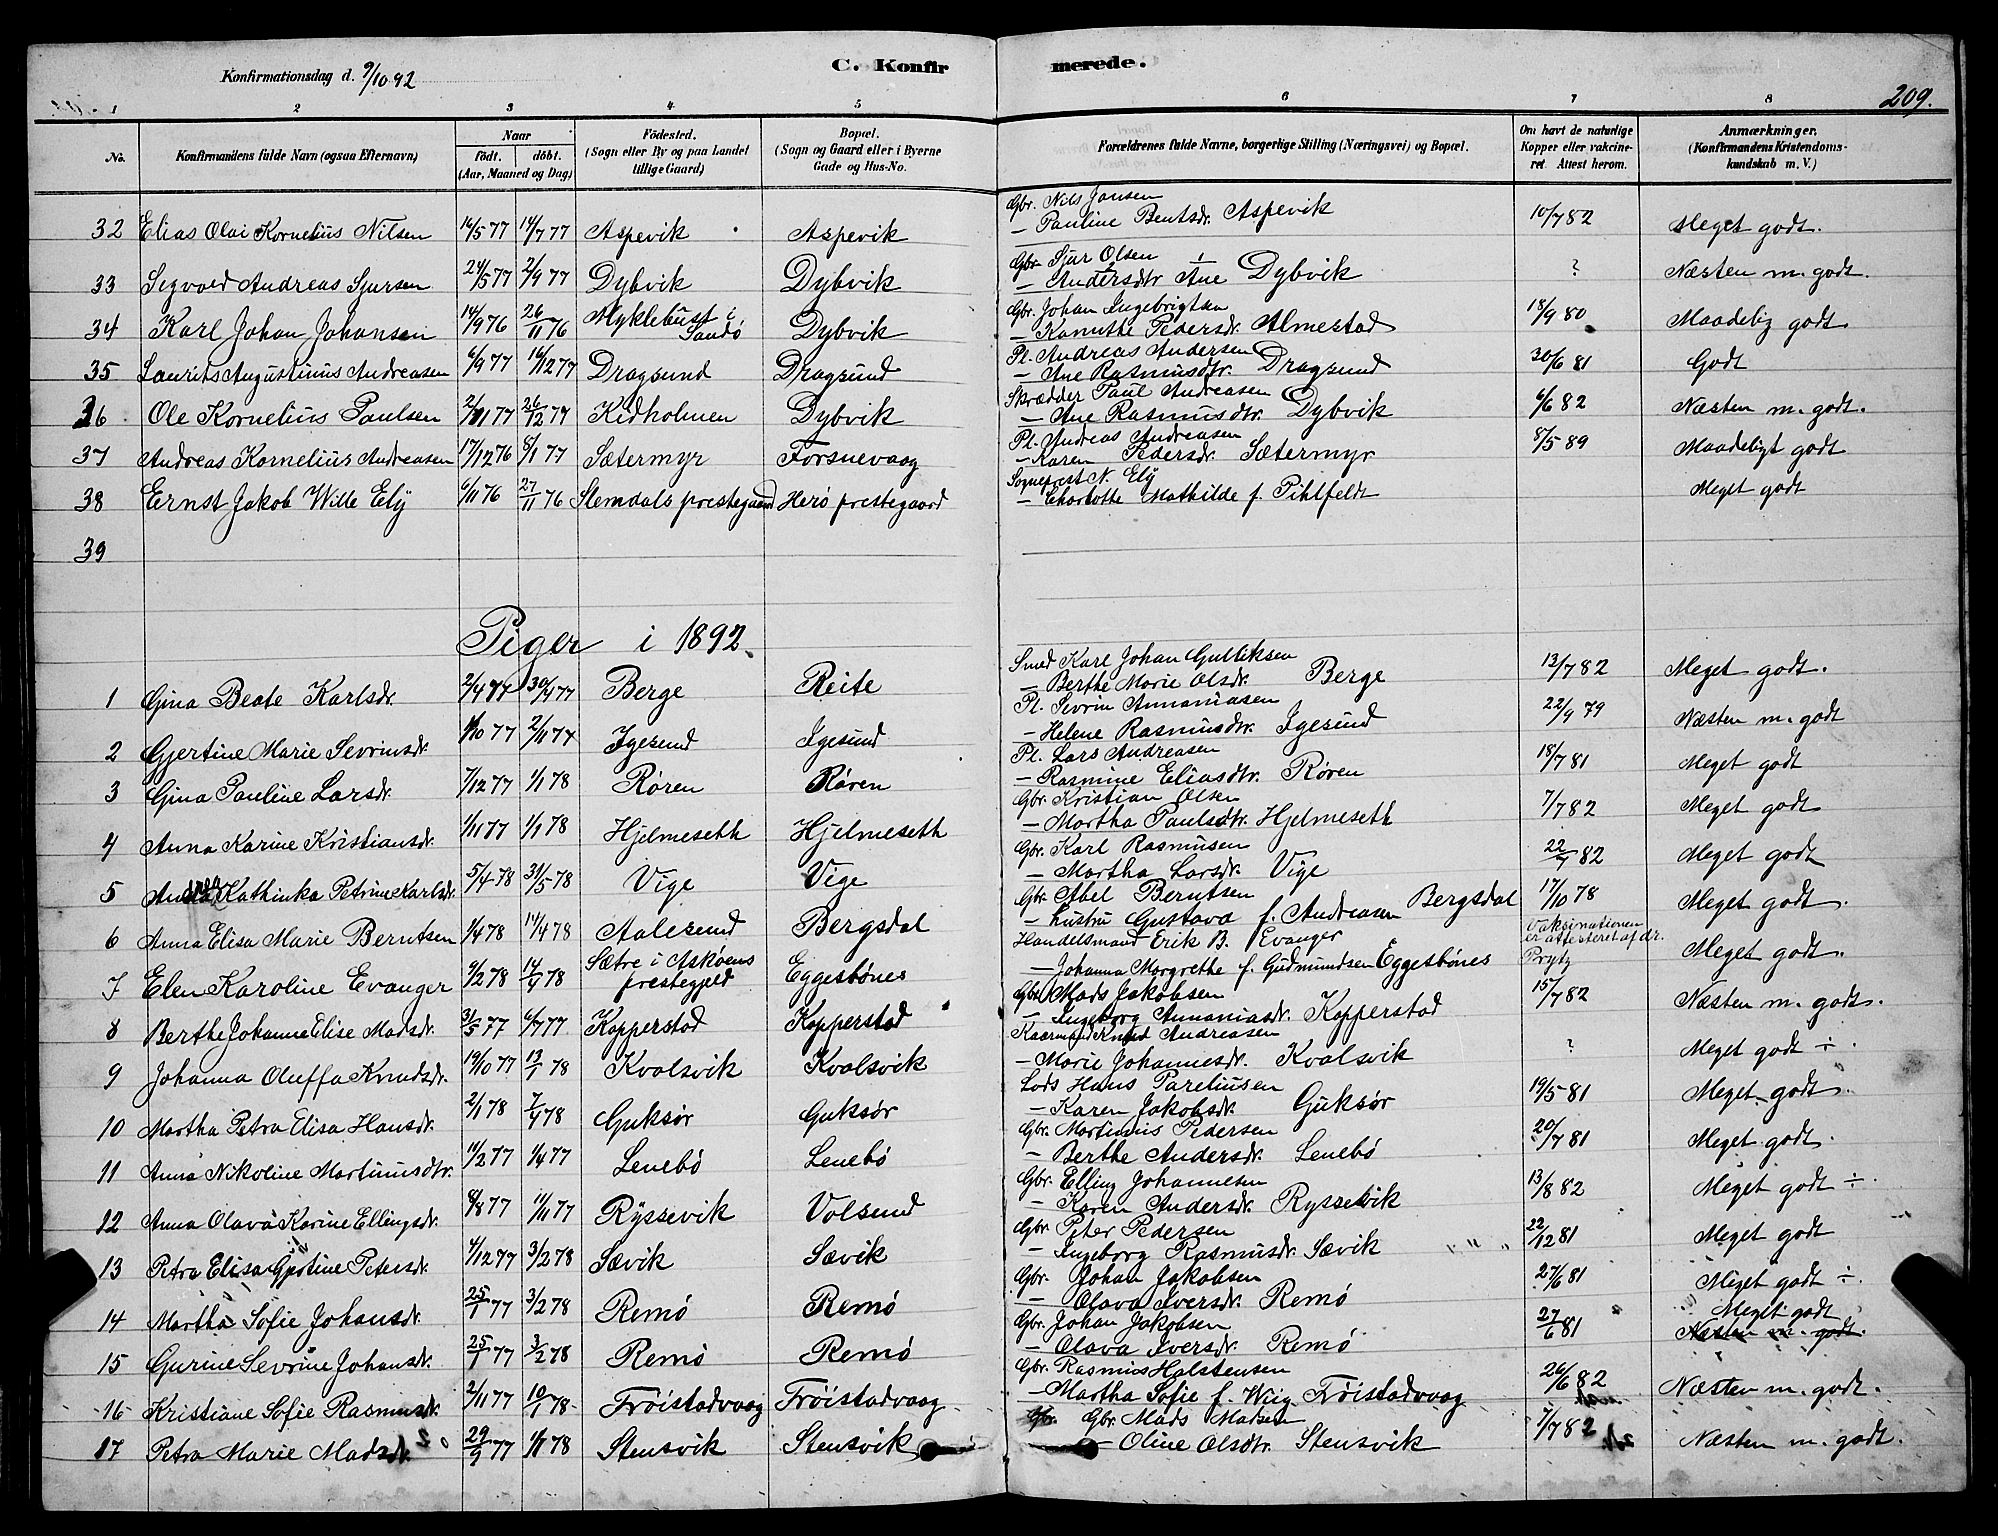 Konfirmationsdag d. 9/10 92
C. Konfirmerede.
209.
1 2 3 4 5 6 7 8
No. Konfirmandens fulde Navn (ogsaa Efternavn) Naar födt. döbt. (Aar, Maaned og Dag) Födested. (Sogn eller By og paa Landet tillige Gaard) Bopæl. (Sogn og Gaard eller i Byerne Gade og Hus-No. Forældrenes fulde Navne, borgerlige Stilling (Næringsvei) og Bopæl. Om havt de naturlige Kopper eller vakcineret. Attest herom. Anmærkninger. (Konfirmandens Kristendomskundskab m. V.)
32 Elias Olai Kornelius Nilsen 14/5 77 14/7 77 Aspevik Aspevik Gbr. Nils Jansen — Pauline Bentsdr. Aspevik 10/7 82 Meget godt.
33 Sigvald Andreas Sjursen 24/5 77 2/9 77 Dybvik Dybvik Gbr. Sjur Olsen — Andersdtr Ane Dybvik ? Næsten m. godt.
34 Karl Johan Johansen 14/9 76 26/11 76 Myklebust i Sandø Dybvik Gbr. Johan Ingebrigtsen — Kanutte Pedersdr. Almestad 18/9 80 Maadelig godt
35 Laurits Augustinus Andreasen 6/9 77 16/12 77 Dragsund Dragsund Pl. Andreas Andersen — Ane Rasmusdtr. Dragsund 30/6 81 Godt
36 Ole Kornelius Paulsen 2/11 77 26/12 77 Kidholmen Dybvik Skrædder Paul Andreasen — Ane Rasmusdtr. Dybvik 6/6 82 Næsten m. godt.
37 Andreas Kornelius Andreasen 17/12 76 8/1 77 Sætermyr Forsnevaag Pl. Andreas Andreasen — Karen Pedersdr. Sætermyr 8/5 89 Maadeligt godt
38 Ernst Jakob Wille Ely 6/11 76 27/11 76 Slemdals prestegaard Herö prestegaard Sogneprest N. Ely — Charlotte Mathilde f. Pihlfeldt Meget godt
39
Piger i 1892.
1 Gina Beate Karlsdr. 2/4 77 30/4 77 Berge Reite Smed Karl Johan Gulliksen — Berthe Marie Olsdr. Berge 13/7 82 Meget godt.
2 Gjertine Marie Sevrinsdr. 1/10 77 2/11 77 Igesund Igesund Pl. Sevrin Annaniasen — Helene Rasmusdtr. Igesund 22/9 79 Næsten m. godt
3 Gina Pauline Larsdr. 7/12 77 1/1 78 Røren Røren Pl. Lars Andreasen — Rasmine Eliasdtr. Røren 18/7 81 Meget godt
4 Anna Karine Kristiansdr. 1/11 77 1/1 78 Hjelmeseth Hjelmeseth Gbr. Kristian Olsen — Martha Paulsdtr. Hjelmeseth 7/7 82 Meget godt
5 Kathinka Petrine Karlsdr. 5/4 78 31/5 78 Vige Vige Gbr. Karl Rasmusen — Martha Larsdr. Vige 22/7 82 Meget godt
6 Anna Elisa Marie Berntsen 1/4 78 14/4 78 Aalesund Bergsdal Gbr. Abel Berntsen — hustru Gustava f. Andreasen Bergsdal 17/10 78 Meget godt.
7 Elen Karoline Evanger 9/2 78 14/4 78 Sætre i Askøens prestegjeld Eggesbönes Handelsmand Erik B. Evanger — Johanna Margrethe f. Gudmundsen Eggesbönes Vaksinationen er attesteret af dr. Prytz Meget godt.
8 Berthe Johanne Elise Madsdr. 31/5 77 6/7 77 Kopperstad Kopperstad Gbr. Mads Jakobsen — Ingeborg Annaniasdr. Kopperstad 15/7 82 Næsten m. godt.
9 Johanna Oluffa Knudsdr. 19/10 77 13/1 78 Kvalsvik Kvalsvik Kaarmand Knud Andreasen — Marie Johannesdr. Kvalsvik ? Meget godt ÷.
10 Martha Petra Elisa Hansdr. 2/1 78 7/4 78 Guksør Guksør Lods Hans Pareliusen — Karen Jakobsdr. Guksør 19/5 81 Meget godt.
11 Anna Nikoline Martinusdtr. 11/2 77 1/4 77 Lenebö Lenebö Gbr. Martinus Pedersen — Berthe Andersdr. Lenebö 20/7 81 Meget godt.
12 Anna Olava Karine Ellingsdr. 8/8 77 11/11 77 Ryssevik Volsund Gbr. Elling Johannesen — Karen Andersdr. Ryssevik 13/8 82 Meget godt ÷.
13 Petra Elisa Gjertine Petersdr. 4/12 77 3/2 78 Sævik Sævik Gbr. Peter Pedersen — Ingeborg Rasmusdr. Sævik 22/12 81 Meget godt
14 Martha Sofie Johansdr. 25/1 77 3/2 78 Remö Remö Gbr. Johan Jakobsen — Olava Iversdr. Remö 27/6 81 Meget godt ÷.
15 Gurine Sevrine Johansdr. 25/1 77 3/2 78 Remö Remö Gbr. Johan Jakobsen — Olava Iversdr. Remö 27/6 81 Meget godt Næsten m. godt.
16 Kristiane Sofie Rasmusdr. 2/11 77 10/1 78 Fröistadvaag Fröistadvaag Gbr. Rasmus Halstensen — Martha Sofie f. Wiig Fröistadvaag 26/6 82 Næsten m. godt.
17 Petra Marie Madsdr. 29/9 77 1/1 78 Stensvik Stensvik Gbr. Gbr. Mads Madsen — Oline Olsdtr. Stensvik 7/7 82 Næsten m. godt.